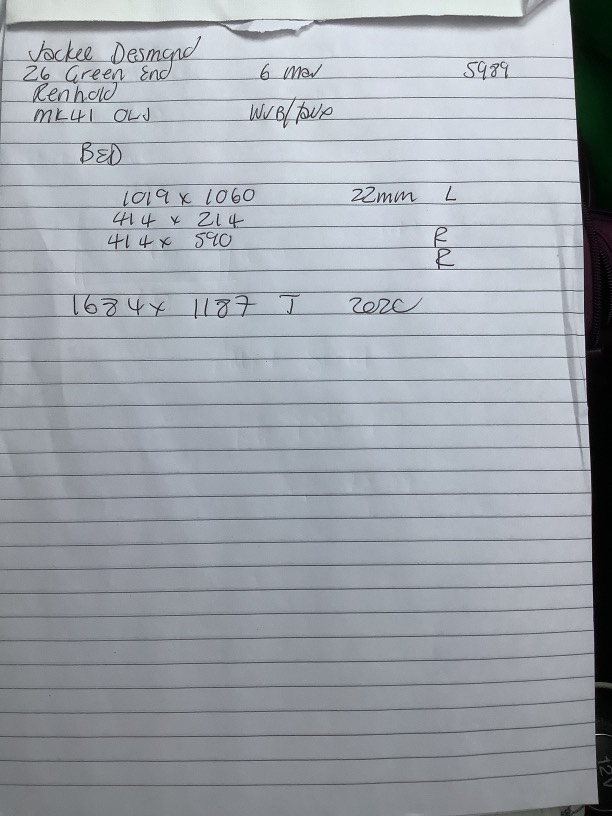 Jackee Desmond
26 Green End 6 Mar 5989
Renhold
MK41 0LJ WVB/
BED
1019 x 1060 22mm L
414 x 214
414 x 590 R
R
1684 x 1187 J 202C
12V